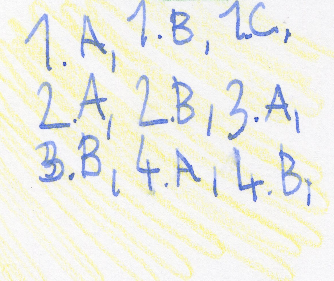 1.A, 1.B, 1.C,
2.A, 2.B, 3.A,
3.B, 4.A, 4.B,